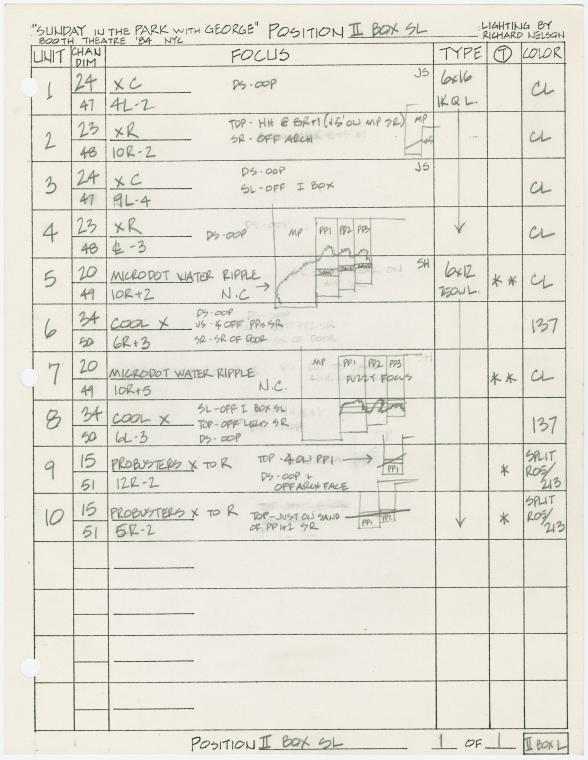 "SUNDAY IN THE PARK WITH GEORGE" POSITION II BOX SL LIGHTING BY
BOOTH THEATRE '84 NYC RICHARD NELSON
UNIT CHAN DIM FOCUS TYPE T COLOR
1 24 X C DS-OOP JS 6x16 CL
47 4L-2 1K Q L.
2 23 X R TOP- HH @ BR+1 (+5' ON MP SR) MP CL
48 10R-2 SR- OFF ARCH +5
3 24 X C DS-OOP JS CL
47 9L-4 SL-OFF I BOX
4 23 X R DS-OOP MP PP1 PP2 PP3 CL
48 ℄-3
5 20 MICRODOT WATER RIPPLE SAND SH 6x12 * * CL
49 10R+2 N.C 750W L.
6 34 COOL X DS-OOP 137
US-4 OFF PPs SR
50 6R+3 SR-SR OF DOOR
7 20 MICRODOT WATER RIPPLE MP PP1 PP2 PP3 * * CL
49 10R+5 N.C. FUZZY FOCUS
8 34 COOL X SL-OFF I BOX SL 137
TOP-OFF LEGS SR
50 6L-3 DS-OOP
9 15 PROBUSTERS X TO R TOP-4 ON PP1 PP1 * SPLIT
51 12R-2 DS-OOP + R05/
OFF ARCH FACE 213
10 15 PROBUSTERS X TO R TOP-JUST ON SAND * SPLIT
51 5R-2 OF PP1+2 SR PP1 PP2 R05/
213
POSITION II BOX SL 1 OF 1 II BOX L